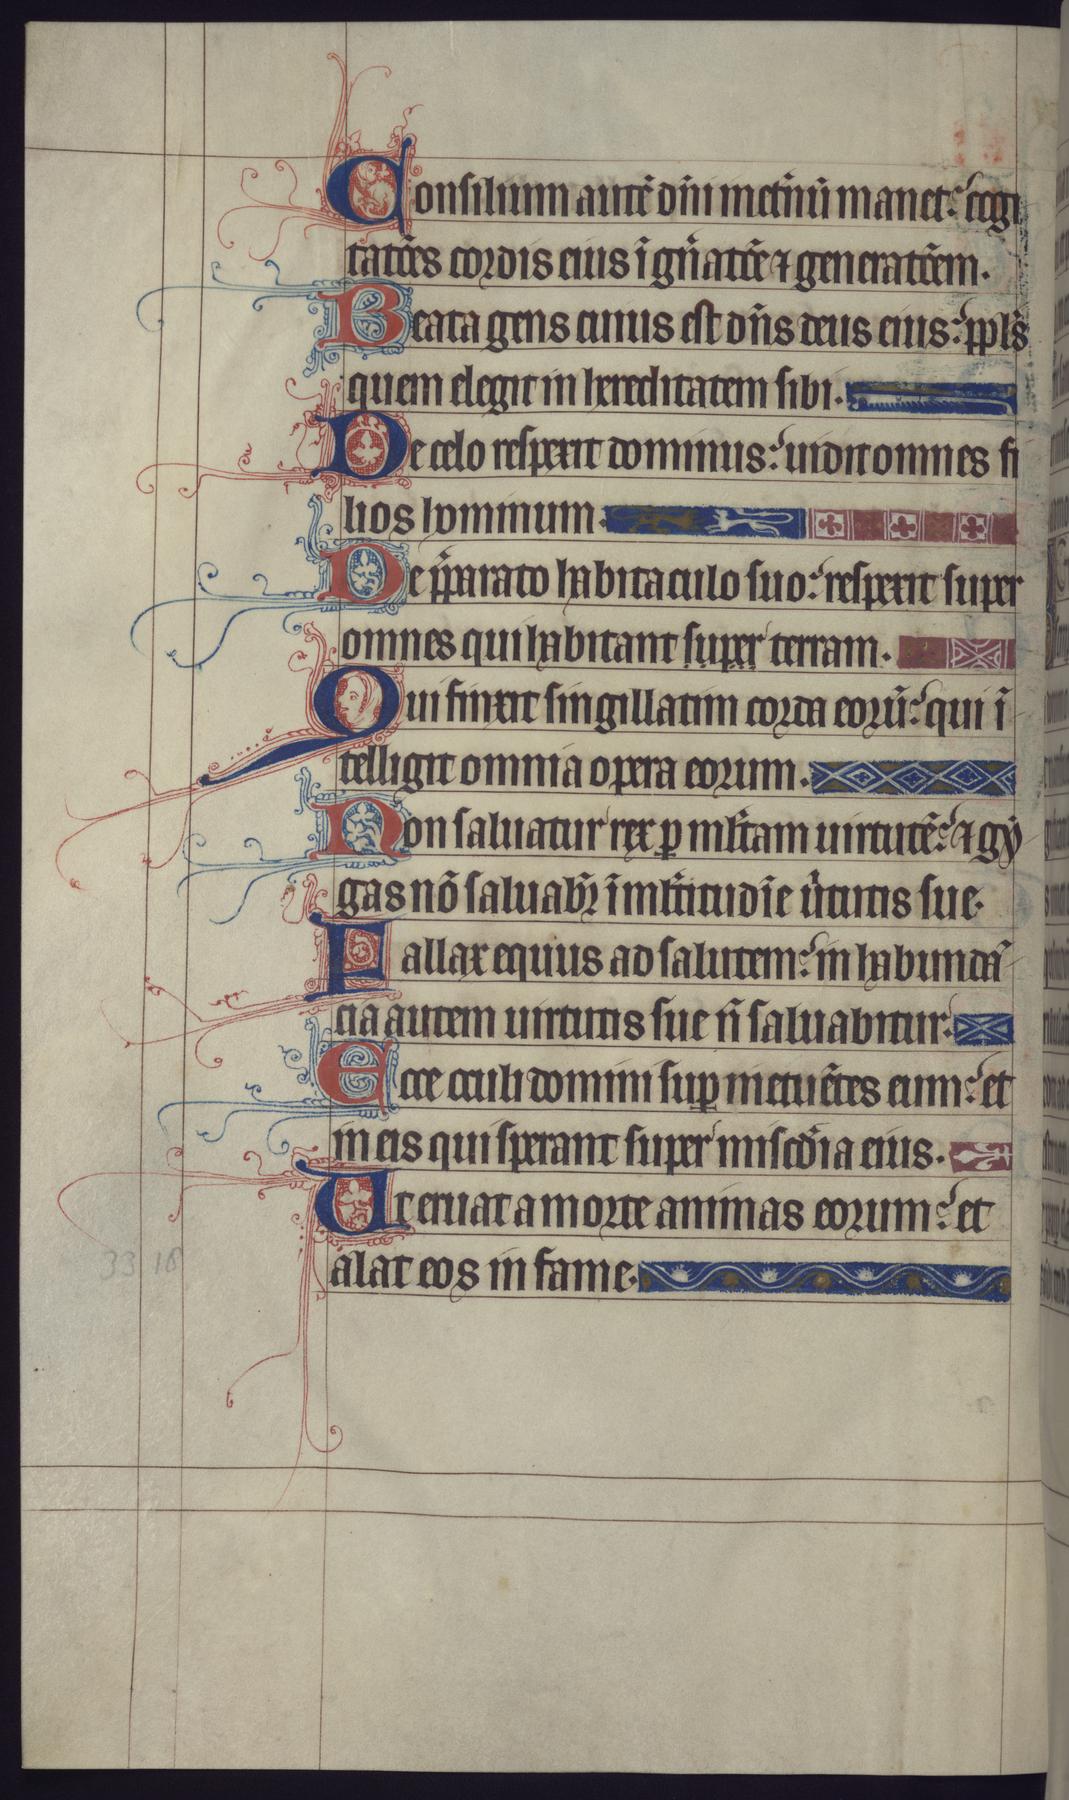 Consilium autē dn̄i inet̄nū manet: cogi
tatōēs cordis eius ī gn̄atōē ⁊ generatōēm.
Beata gens cuius est dn̄s deus eius: ppl̄s
quem elegit in hereditatem sibi.
De celo respexit dominus: uidit omnes fi
lios hominum.
De p̄parato habitaculo suo: respexit super
omnes qui habitant super terram.
Qui finxit singillatim corda eorū: qui ī
telligit omnia opera eorum.
Non saluatur rex ꝑ ml̄tam uirtutē: ⁊ gy
gas nō saluabꝛ̄ ī ml̄titudīe ūtutis sue.
Fallax equus ad salutem: in habundā
cia autem uirtutis sue n̄ saluabitur.
Ecce oculi domini suꝑ metuētes eum: et
in eis qui sperant super mis̄cdia eius.
Ut eruat a morte animas eorum: et
alat eos in fame.
33 18